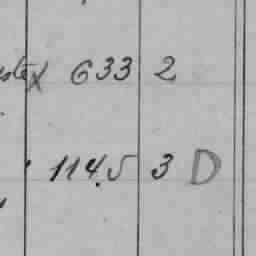 x 633 2
114.5 3 D